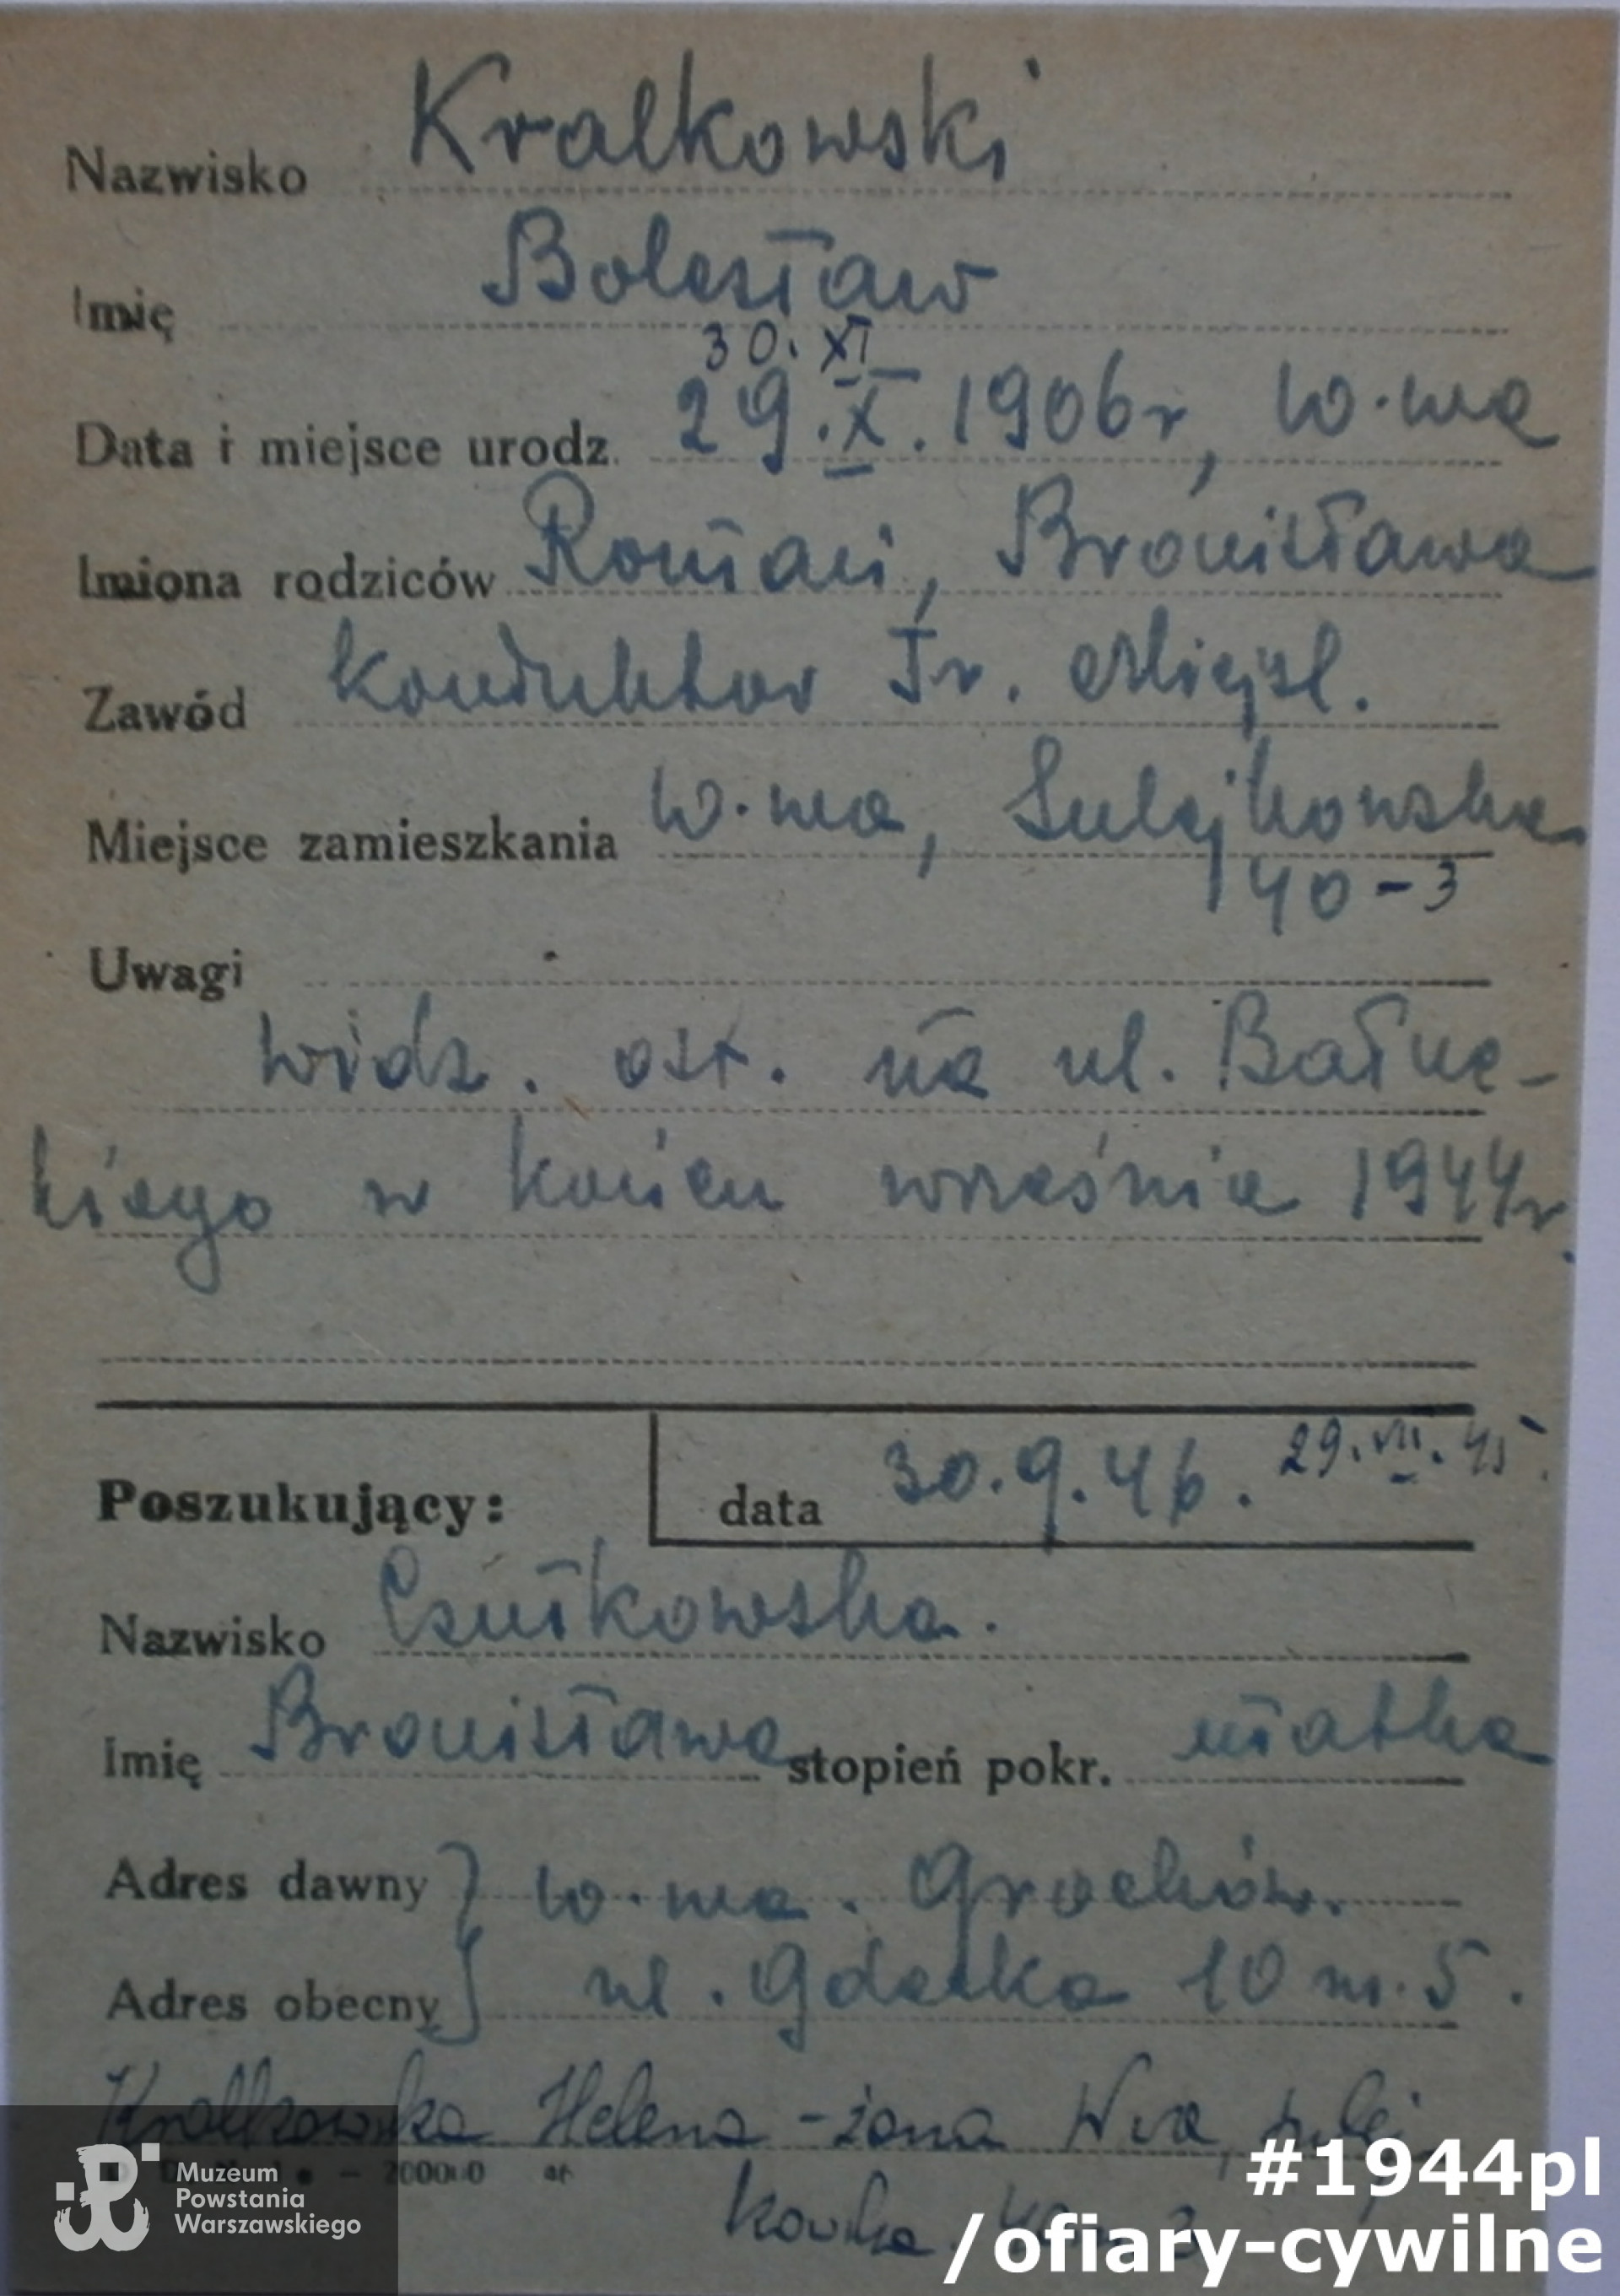 Nazwisko Kralkowski
Imię Bolesław
30. XI
Data i miejsce urodz. 29.X.1906r, W-wa
Imiona rodziców Roman, Bronisława
Zawód konduktor Tr. Miejsk.
Miejsce zamieszkania W-wa, Sulejkowska
40-3
Uwagi
widz. ost. na ul. Bałuc-
kiego w końcu września 1944r.
Poszukujący: data 30.9.46. 29.VIII.45.
Nazwisko Czułkowska.
Imię Bronisława stopień pokr. matka
Adres dawny } W-wa. Grochów.
Adres obecny } ul. Gdecka 10 m. 5.
Kralkowska Helena - żona Wwa, Sulej
2000
kowska 40 m 3
Muzeum
Powstania
Warszawskiego
#1944pl
/ofiary-cywilne